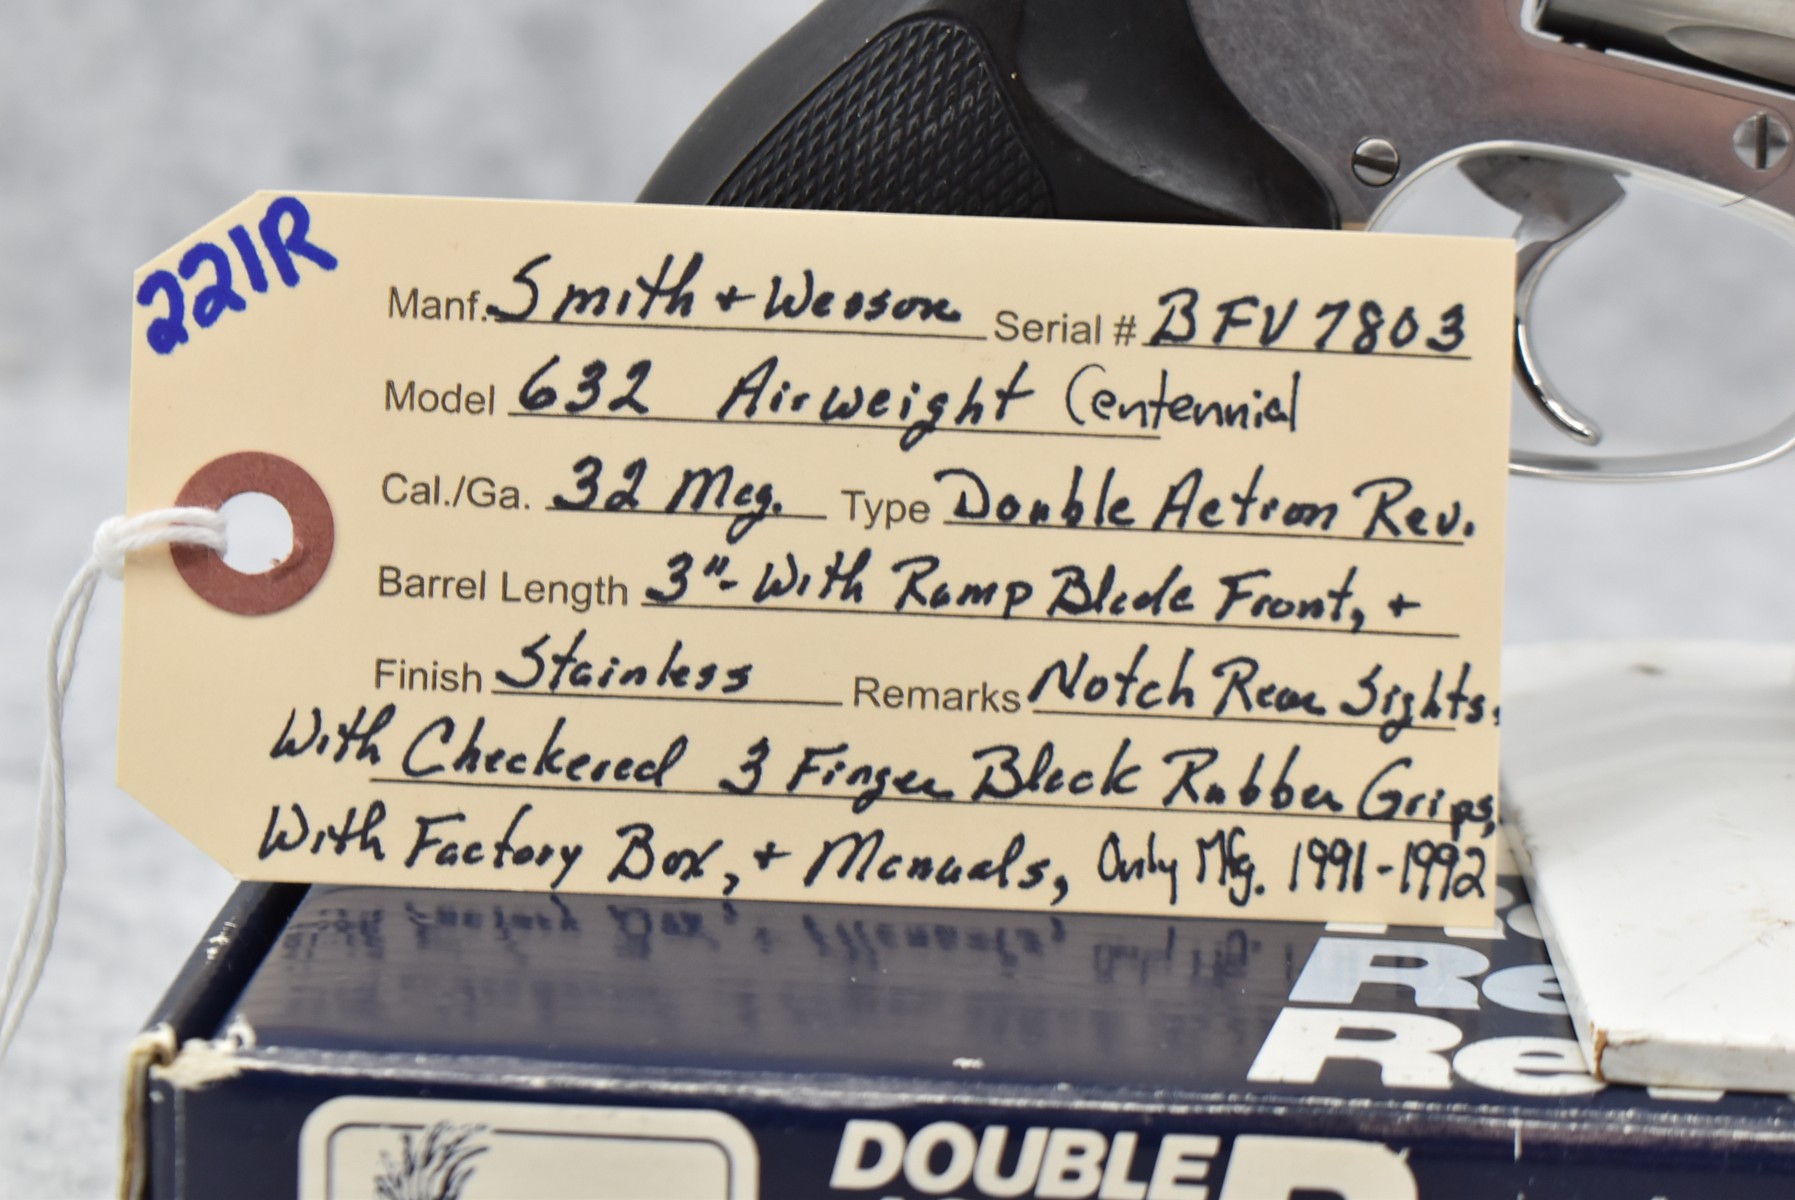 221R
Manf. Smith + Wesson Serial # BFV7803
Model 632 Airweight Centennial
Cal./Ga. 32 Mag. Type Double Action Rev.
Barrel Length 3"- With Ramp Blade Front, +
Finish Stainless Remarks Notch Rear Sights,
With Checkered 3 Finger Black Rubber Grips,
With Factory Box, + Manuals, Only Mfg. 1991-1992
Re
Re
DOUBLE